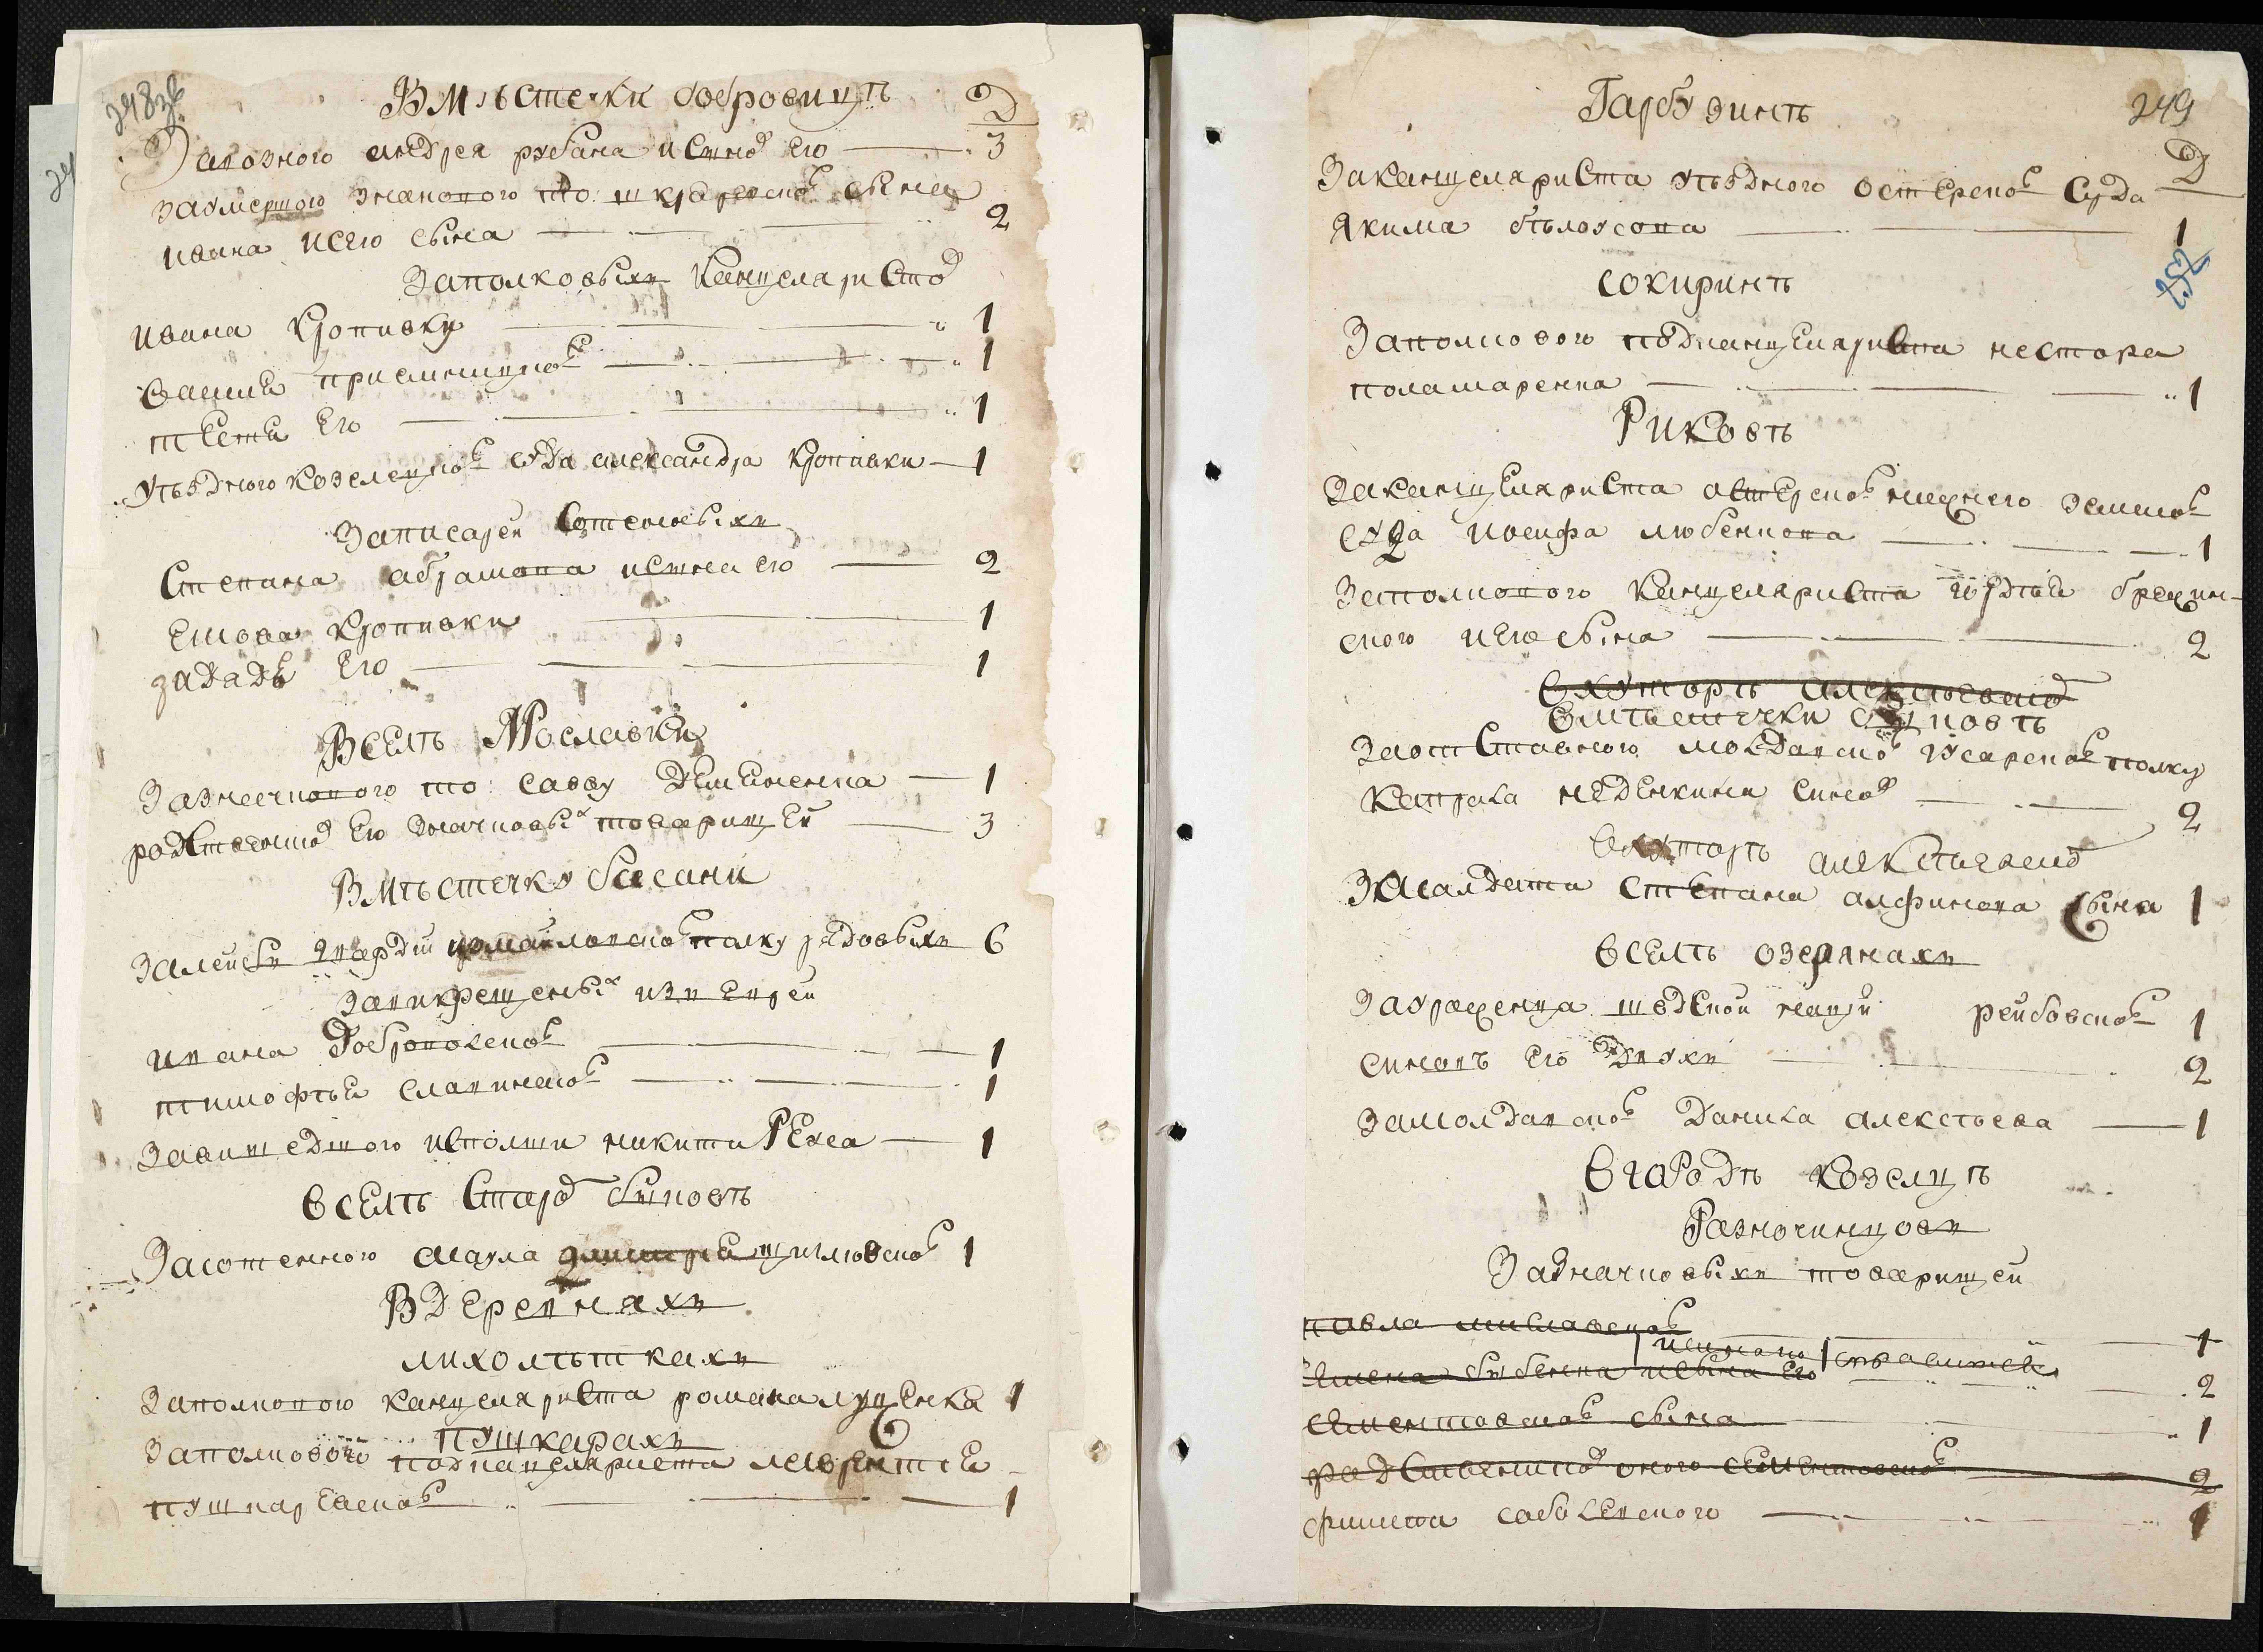 248 об.
В мѣстечки бобровицѣ Д
За возного андрея рубана и синов его 3
За умершого значкового то: шкляревског сына
ивана и его сына 2
За полковыхъ канцеляристов
ивана кропивки 1
василя 1
тестя его 1
уѣздного козелецког суда александра кропивки 1
За писарей сотенныхъ
Степана абрамова и сина его 2
кропивки 1
за дядю его 1
В селѣ Мославки
За значкового то: савву Деменненка 1
родственников его значковых товарищей 3
В мѣстечку басани
За лейбъ гвардіи измайловског полку рядовыхъ 6
За викрещеных изъ еврей
ивана Доброволског 1
тимофѣя славинског 1
За вишедшого исполши никити 1
в селѣ Старой биковѣ
За сотенного есаула 1
В деревняхъ
лихолѣткахъ
За полкового канцеляриста романа луценка 1
пушкарахъ
За полкового подканцеляриста лаврентіе
пушкаревског 1
249
Гарбузинѣ
Д
За канцеляриста уѣздного остерског суда
якима бѣлоусова 1
257
сокиринѣ
За полкового подканцеляриста нестора
поламаренка 1
Риковѣ
За канцеляриста остерског нижнего земског
суда иосифа любенкова 1
За полкового канцеляриста гордѣя брежин-
ского и его сына 2
в хуторѣ алексѣевкой
в мѣстечки биковѣ
За отставного молдавског гусарског полку
капрала неделкина синов 2
в хуторѣ алексѣевкой
За салдата степана алфимова сына 1
в селѣ озерянахъ
За уроженца шведской націи рейбовског 1
синовъ его двухъ 2
За молдавског данила алексѣева 1
в городѣ козелцѣ
Разночинцовъ
За значковыхъ товарищей
павла миславског 1
семена бубенка и сына его 2
сементовског сына 1
родственников оного сементовског 2
филипа соболевского 1